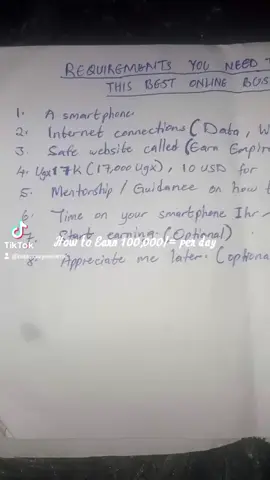 REQUIREMENTS YOU NEED
THIS BEST ONLINE BUS
1. A smartphone.
2. Internet connections (Data, W
3. Safe website called (Earn Empire
4. Ugx 17K (17,000 Ugx), 10 USD for
5. Mentorship / Guidance on how t
6. Time on your smartphone 1hr
7. Start earning. (Optional)
How to Earn 100,000/= per day
8. Appreciate me later. (optional
TikTok